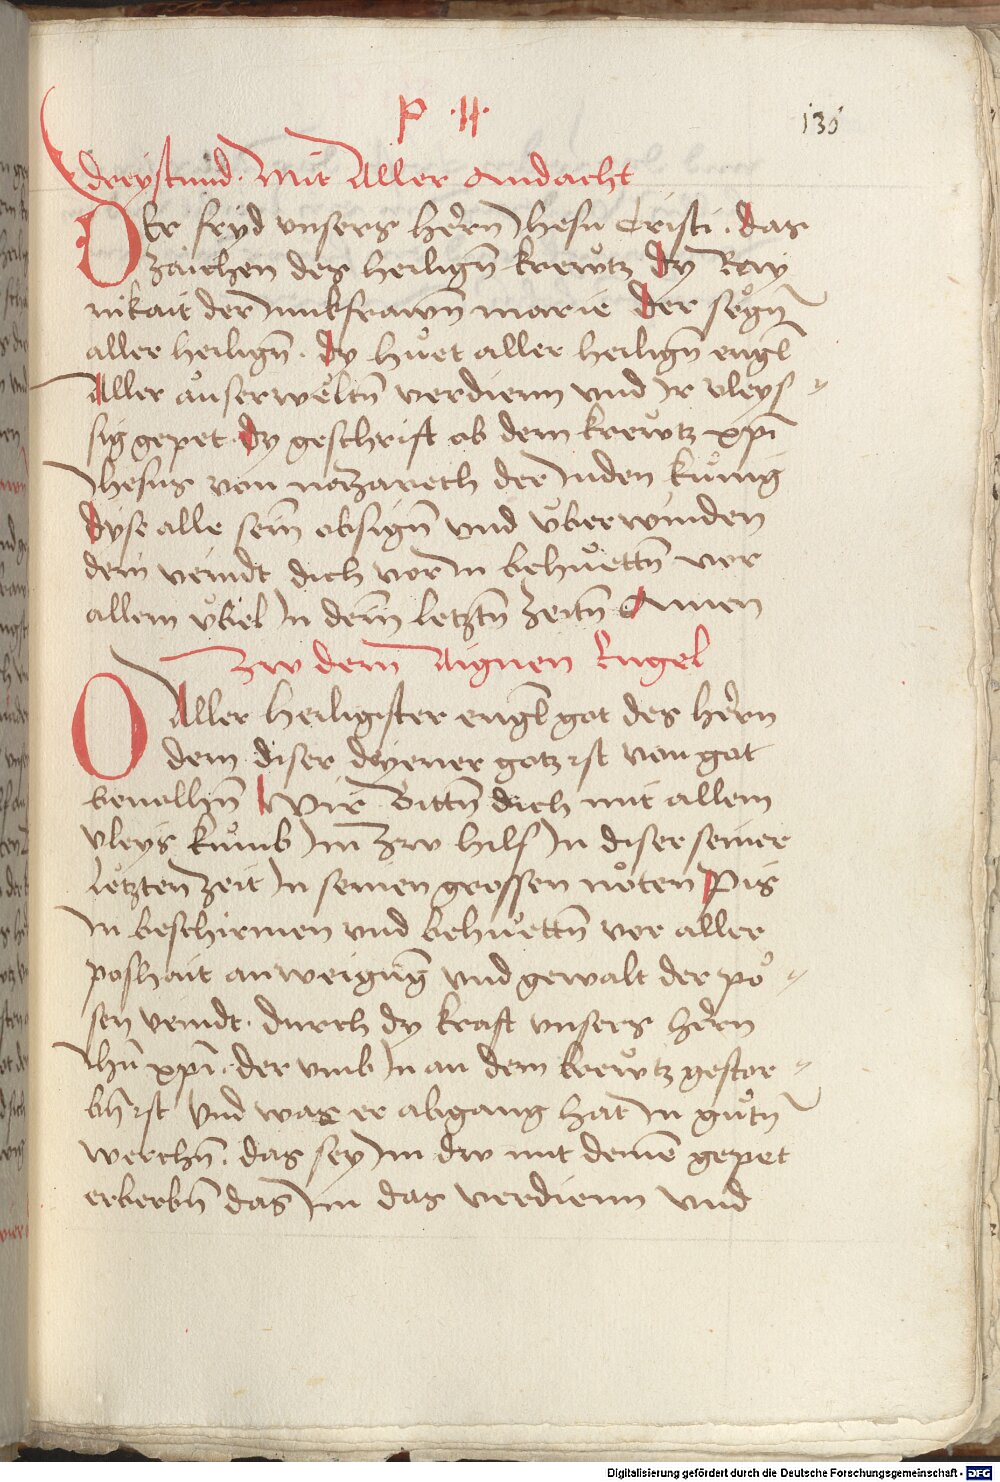 P · II ·
136
dreystund · Mit Aller Andacht
DEr fryd unsers herrn Jhesu Cristi · das
zaichen des heilign̄ krewͦtz dy Ray
nikait der Junkfrawn̄ marie der segn̄
aller heilign̄ · dy huͦet aller heilign̄ engl̄
Aller auͦserweltn̄ verdienn und Ir vleys=
sig gepet · dy geschrift ob dem krewͦtz xp̄i
Jhesus von nazareth der Juden kuͦnig
dyse alle sein̄ obsign̄ und uͦberwinden
dein veindt dich vor In behuͦettn̄ vor
allem uͦbel In dein̄ letztn̄ zeitn̄ Amen
Zw dem Aignen Engel
O Aller heiligister engl̄ got des herrn
dem diser dyener gotz ist von got
bevolhn̄ Wir Bittn̄ dich mit allem
vleys kuͦmb Im̄ zw hilf In diser seiner
letzten zeit In seinen grossen noͤten Pis
In beschirmen und behuͦettn̄ vor aller
poshait anweigūg und gewalt der poͤ=
sen veindt · durch dy kraft unsers herrn
Jhū xp̄i · der umb In an dem krewͦtz gestor=
bn̄ ist Und was er abgang hat In guͦtn̄
werchn̄ · das sey Im dw mit deinē gepet
erberbn̄ das Im das verdienn und
Digitalisierung gefördert durch die Deutsche Forschungsgemeinschaft - DFG